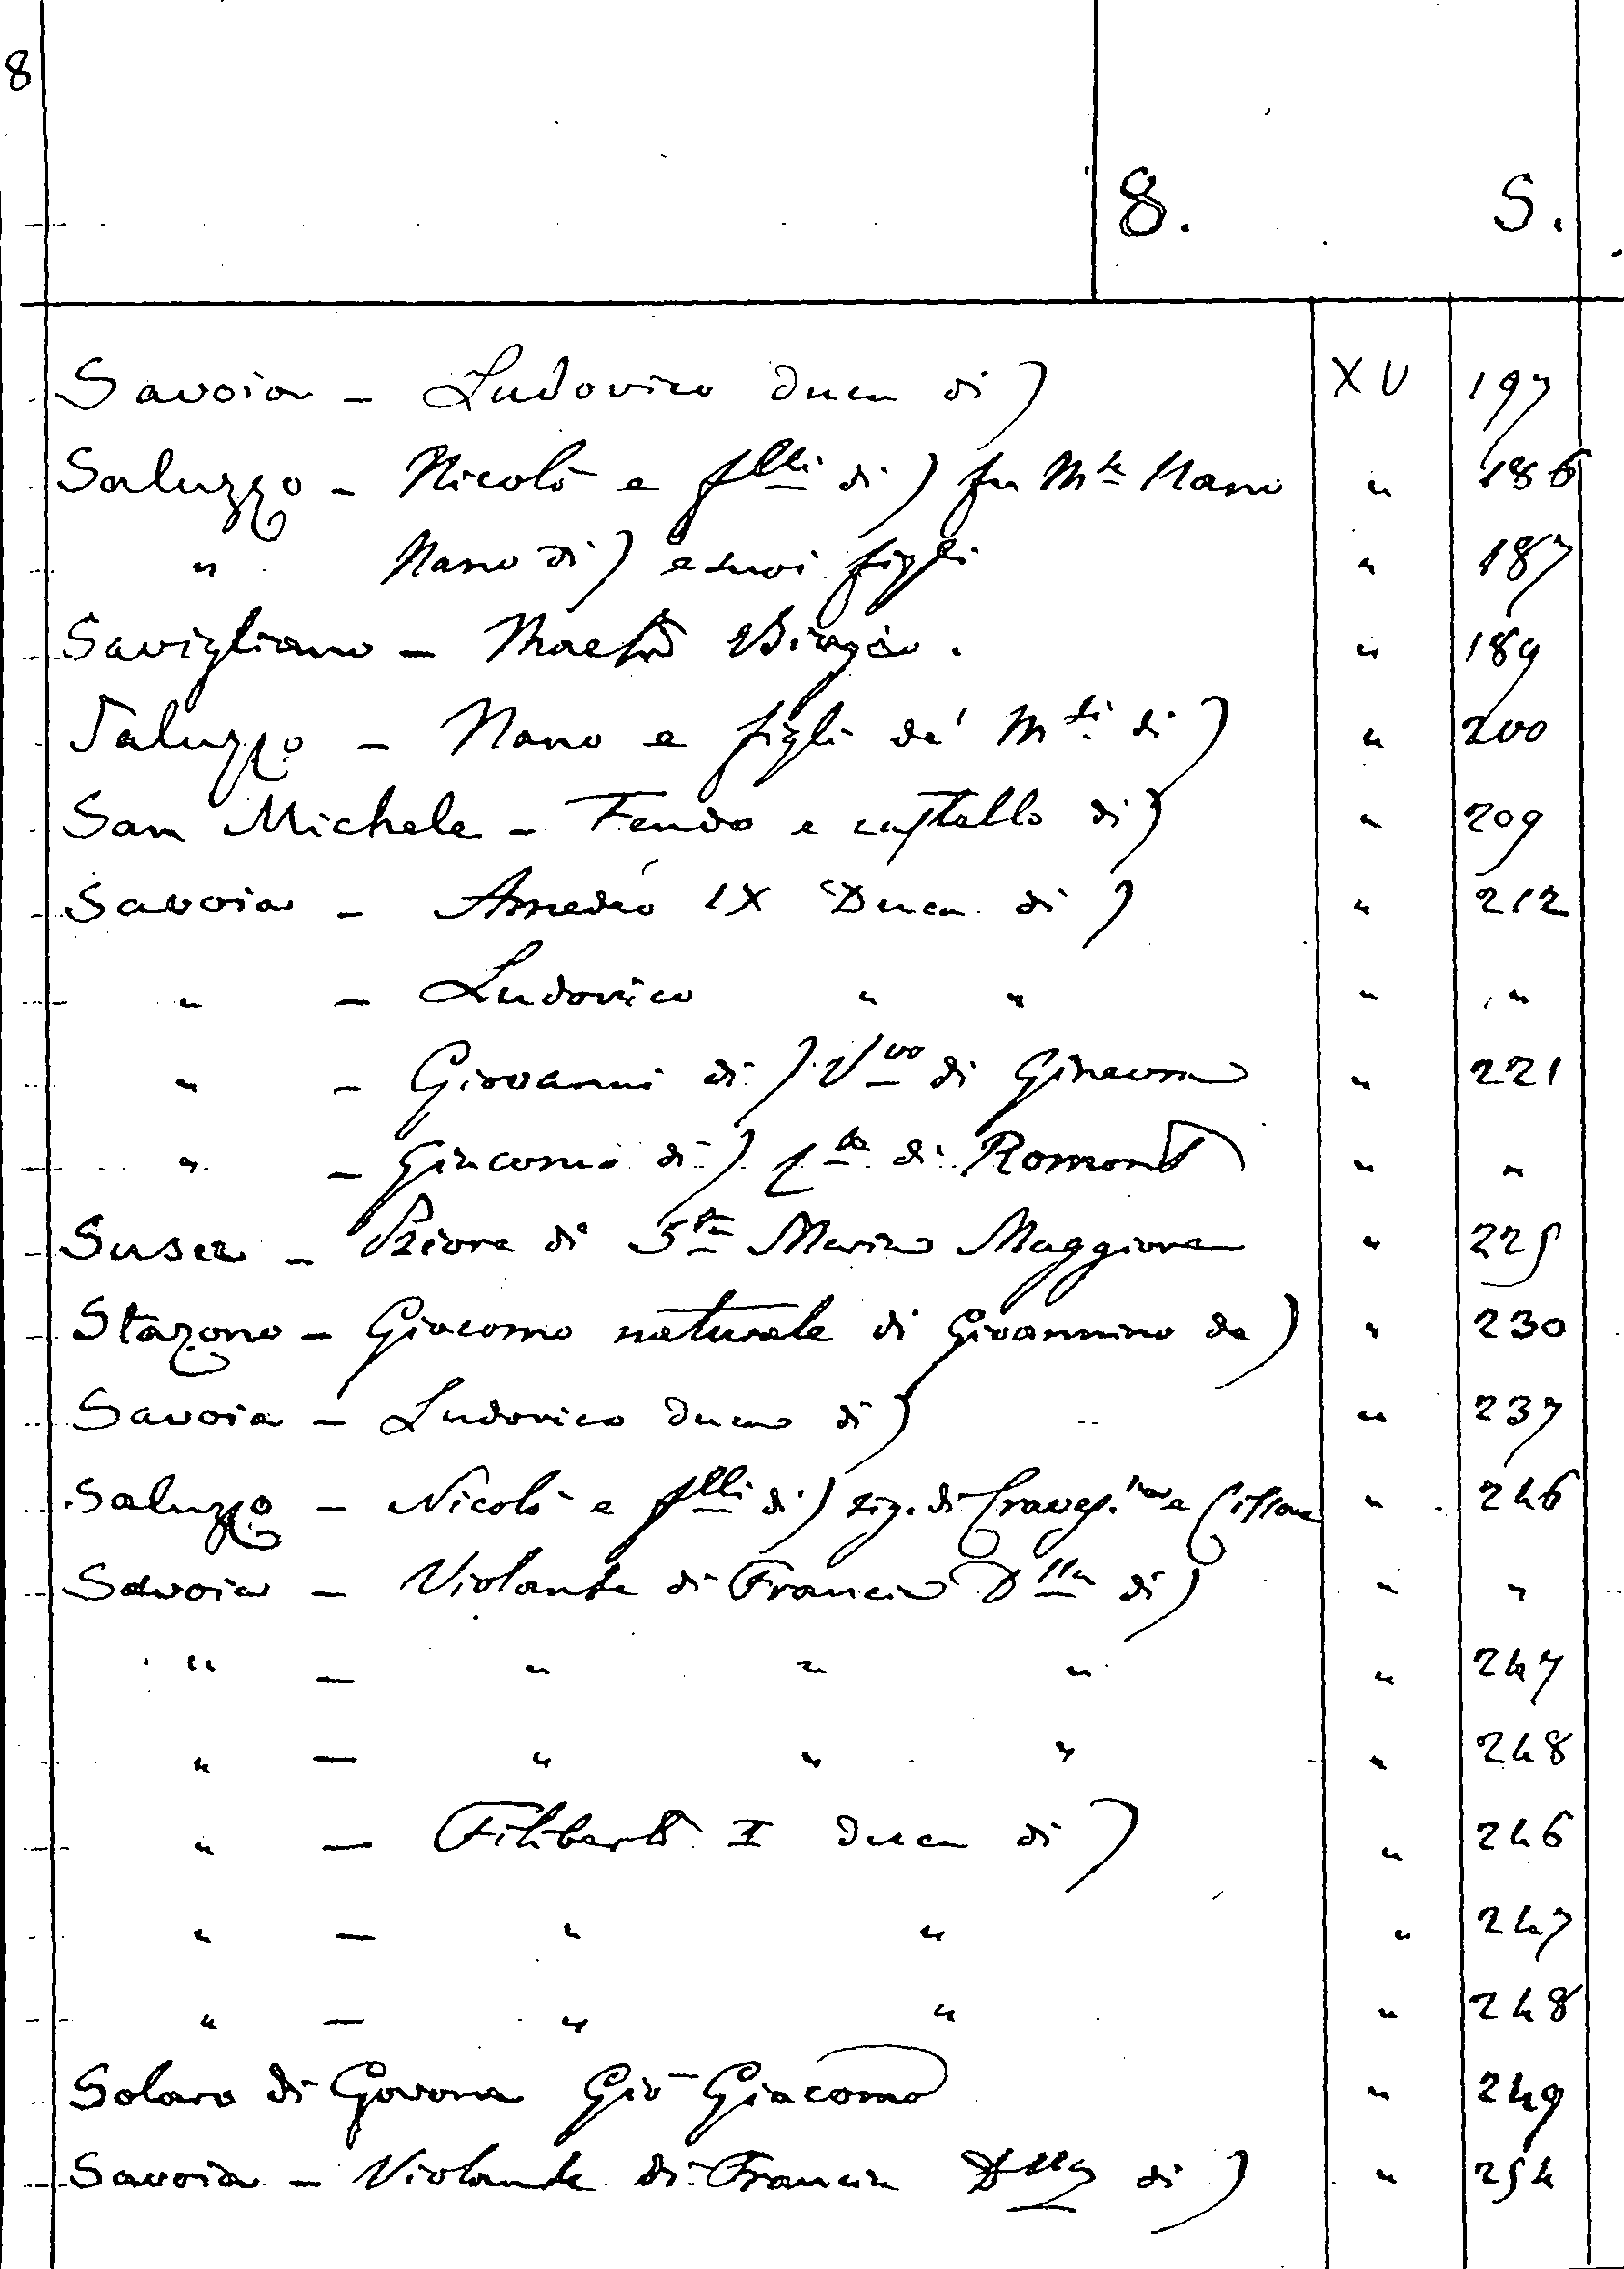 8
8. S.
Savoia - Ludovico Duca di) XV 197
Saluzzo - Nicolò e flli di) fu Mse Mano " 186
" Mano di) e suoi figli " 187
Savigliano - Maestro Biagio. " 189
Saluzzo - Mano e figli de' Msi di) " 200
San Michele - Feudo e castello di) " 209
Savoia - Amedeo IX Duca di) " 212
" - Ludovico " " " "
" - Giovanni di) Vvo di Ginevra " 221
" - Giacomo di) Cte di Romont " "
Susa - Priore di Sta Maria Maggiore " 225
Stazono - Giacomo naturale di Giovannino da) " 230
Savoia - Ludovico Duca di) " 237
Saluzzo - Nicolò e flli di) sig. di e Cissone " 246
Savoia - Violante di Francia Dssa di) " "
" - " " " " 247
" - " " " " 248
" - Filiberto I Duca di) " 246
" - " " " 247
" - " " " 248
Solaro di Govone Gio Giacomo " 249
Savoia - Violante di Francia Dssa di) " 254